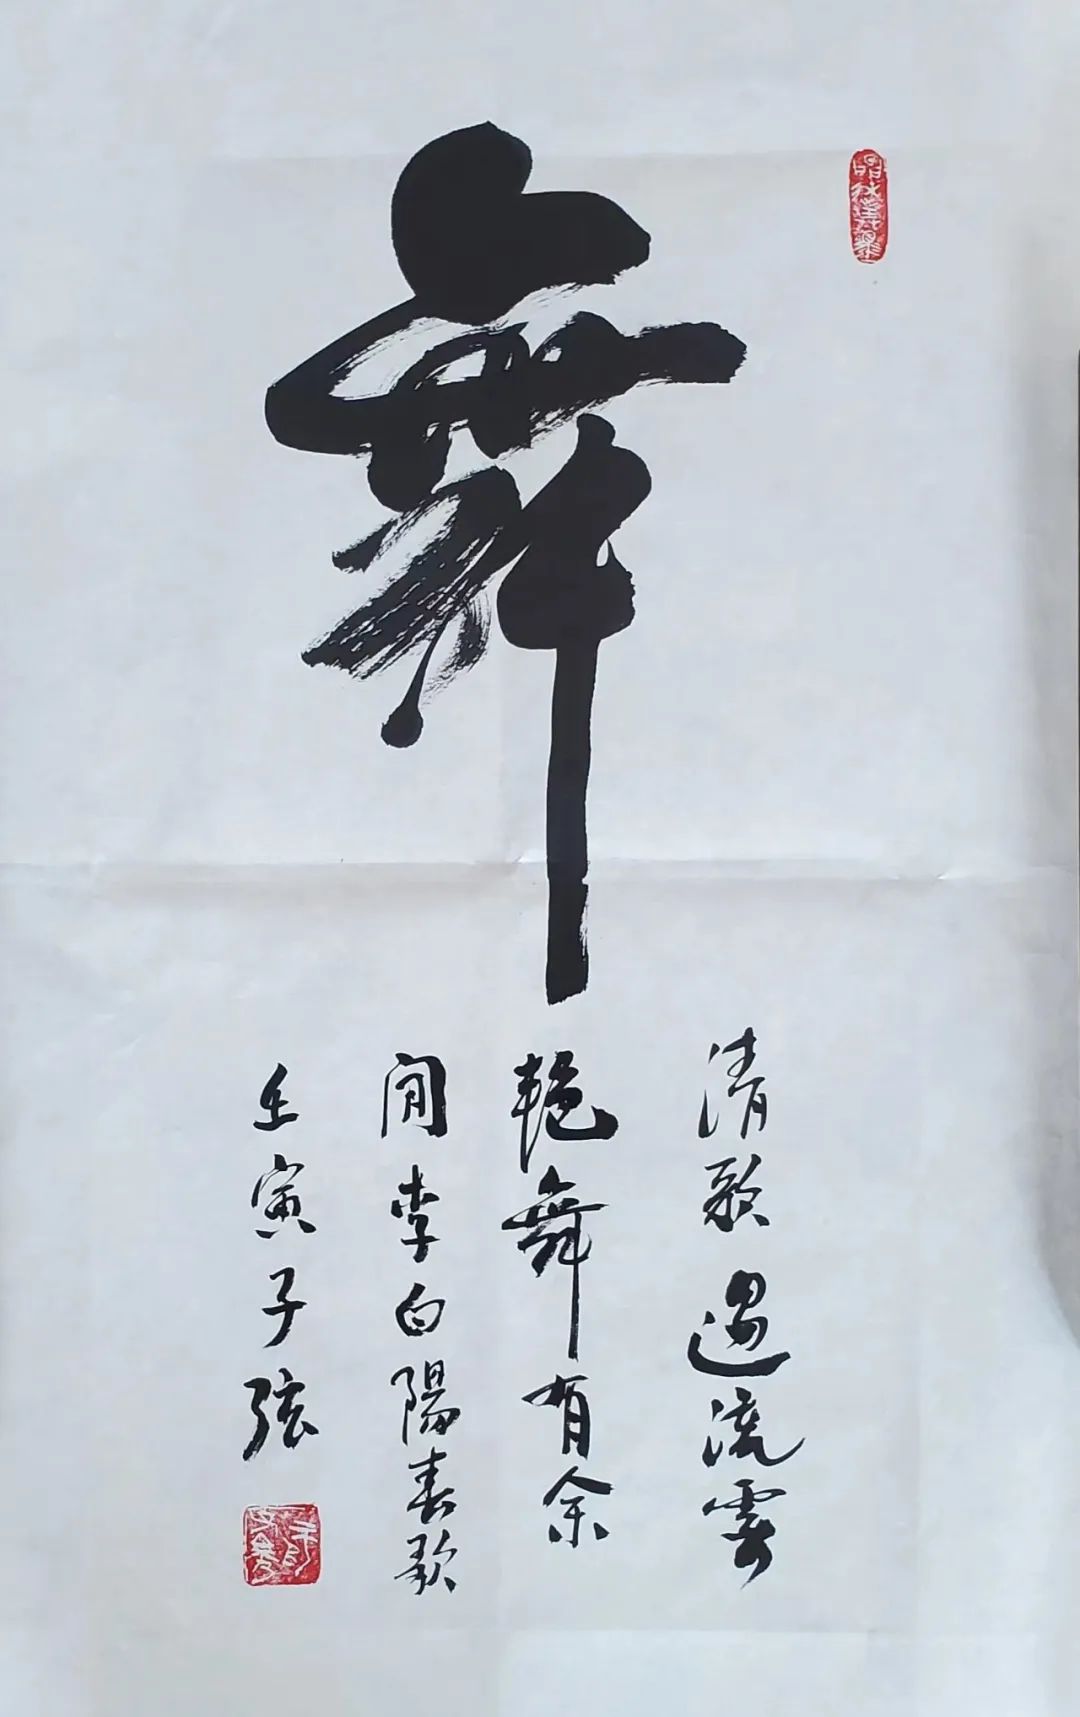 舞
清歌遏流雲
艳舞有余
闲李白陽春歌
壬寅子弦